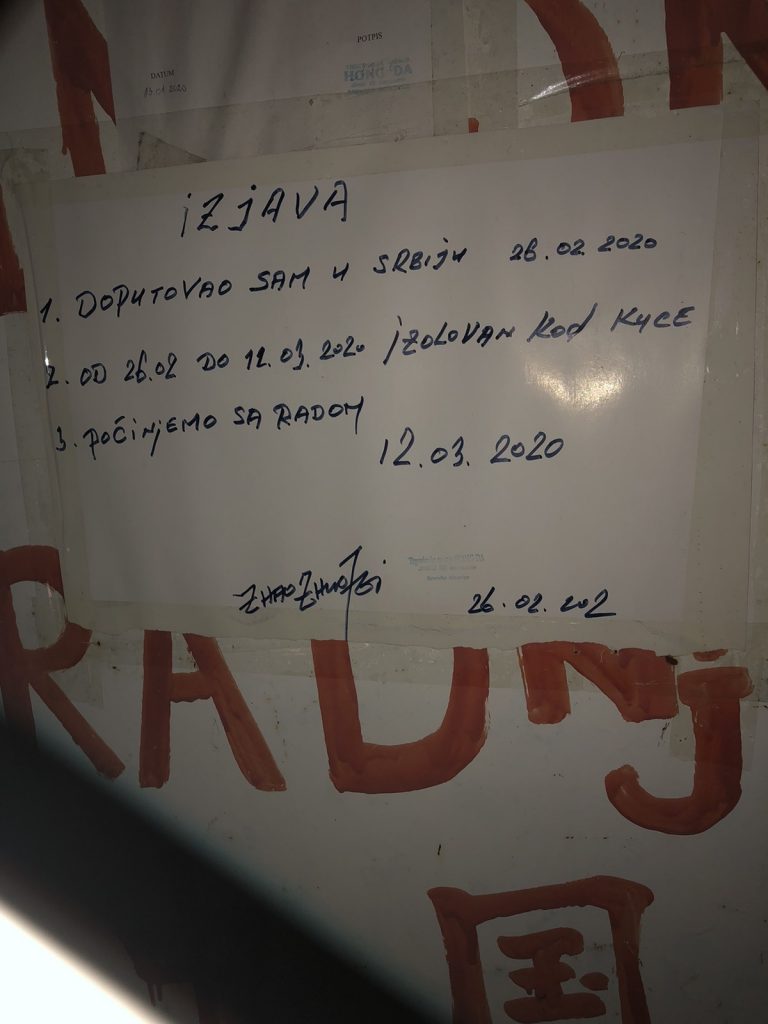 POTPIS
DATUM
HONG DA
IZJAVA
1. DOPUTOVAO SAM U SRBIJU 26.02.2020
2. OD 26.02 DO 12.03.2020 IZOLOVAN KOD KUĆE
3. POČINJEMO SA RADOM
12.03.2020
26.02.202
RADNJ
国